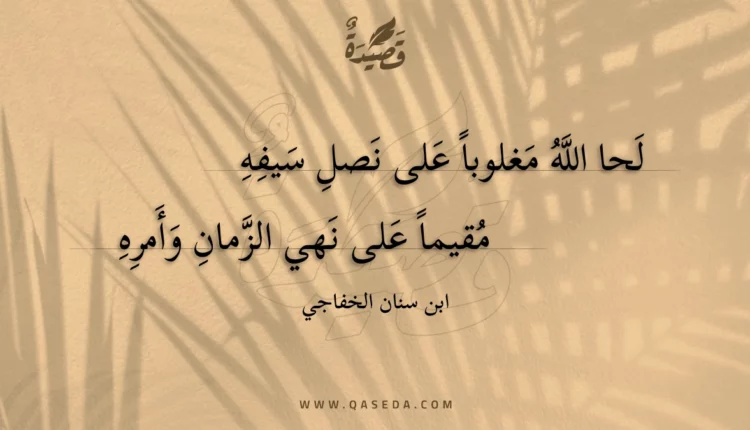 قَصِيْدَةٌ
لَحا اللَّهُ مَغلوباً عَلى نَصلِ سَيفِهِ
مُقيماً عَلى نَهيِ الزَّمانِ وَأَمرِهِ
ابن سنان الخفاجي
WWW.QASEDA.COM